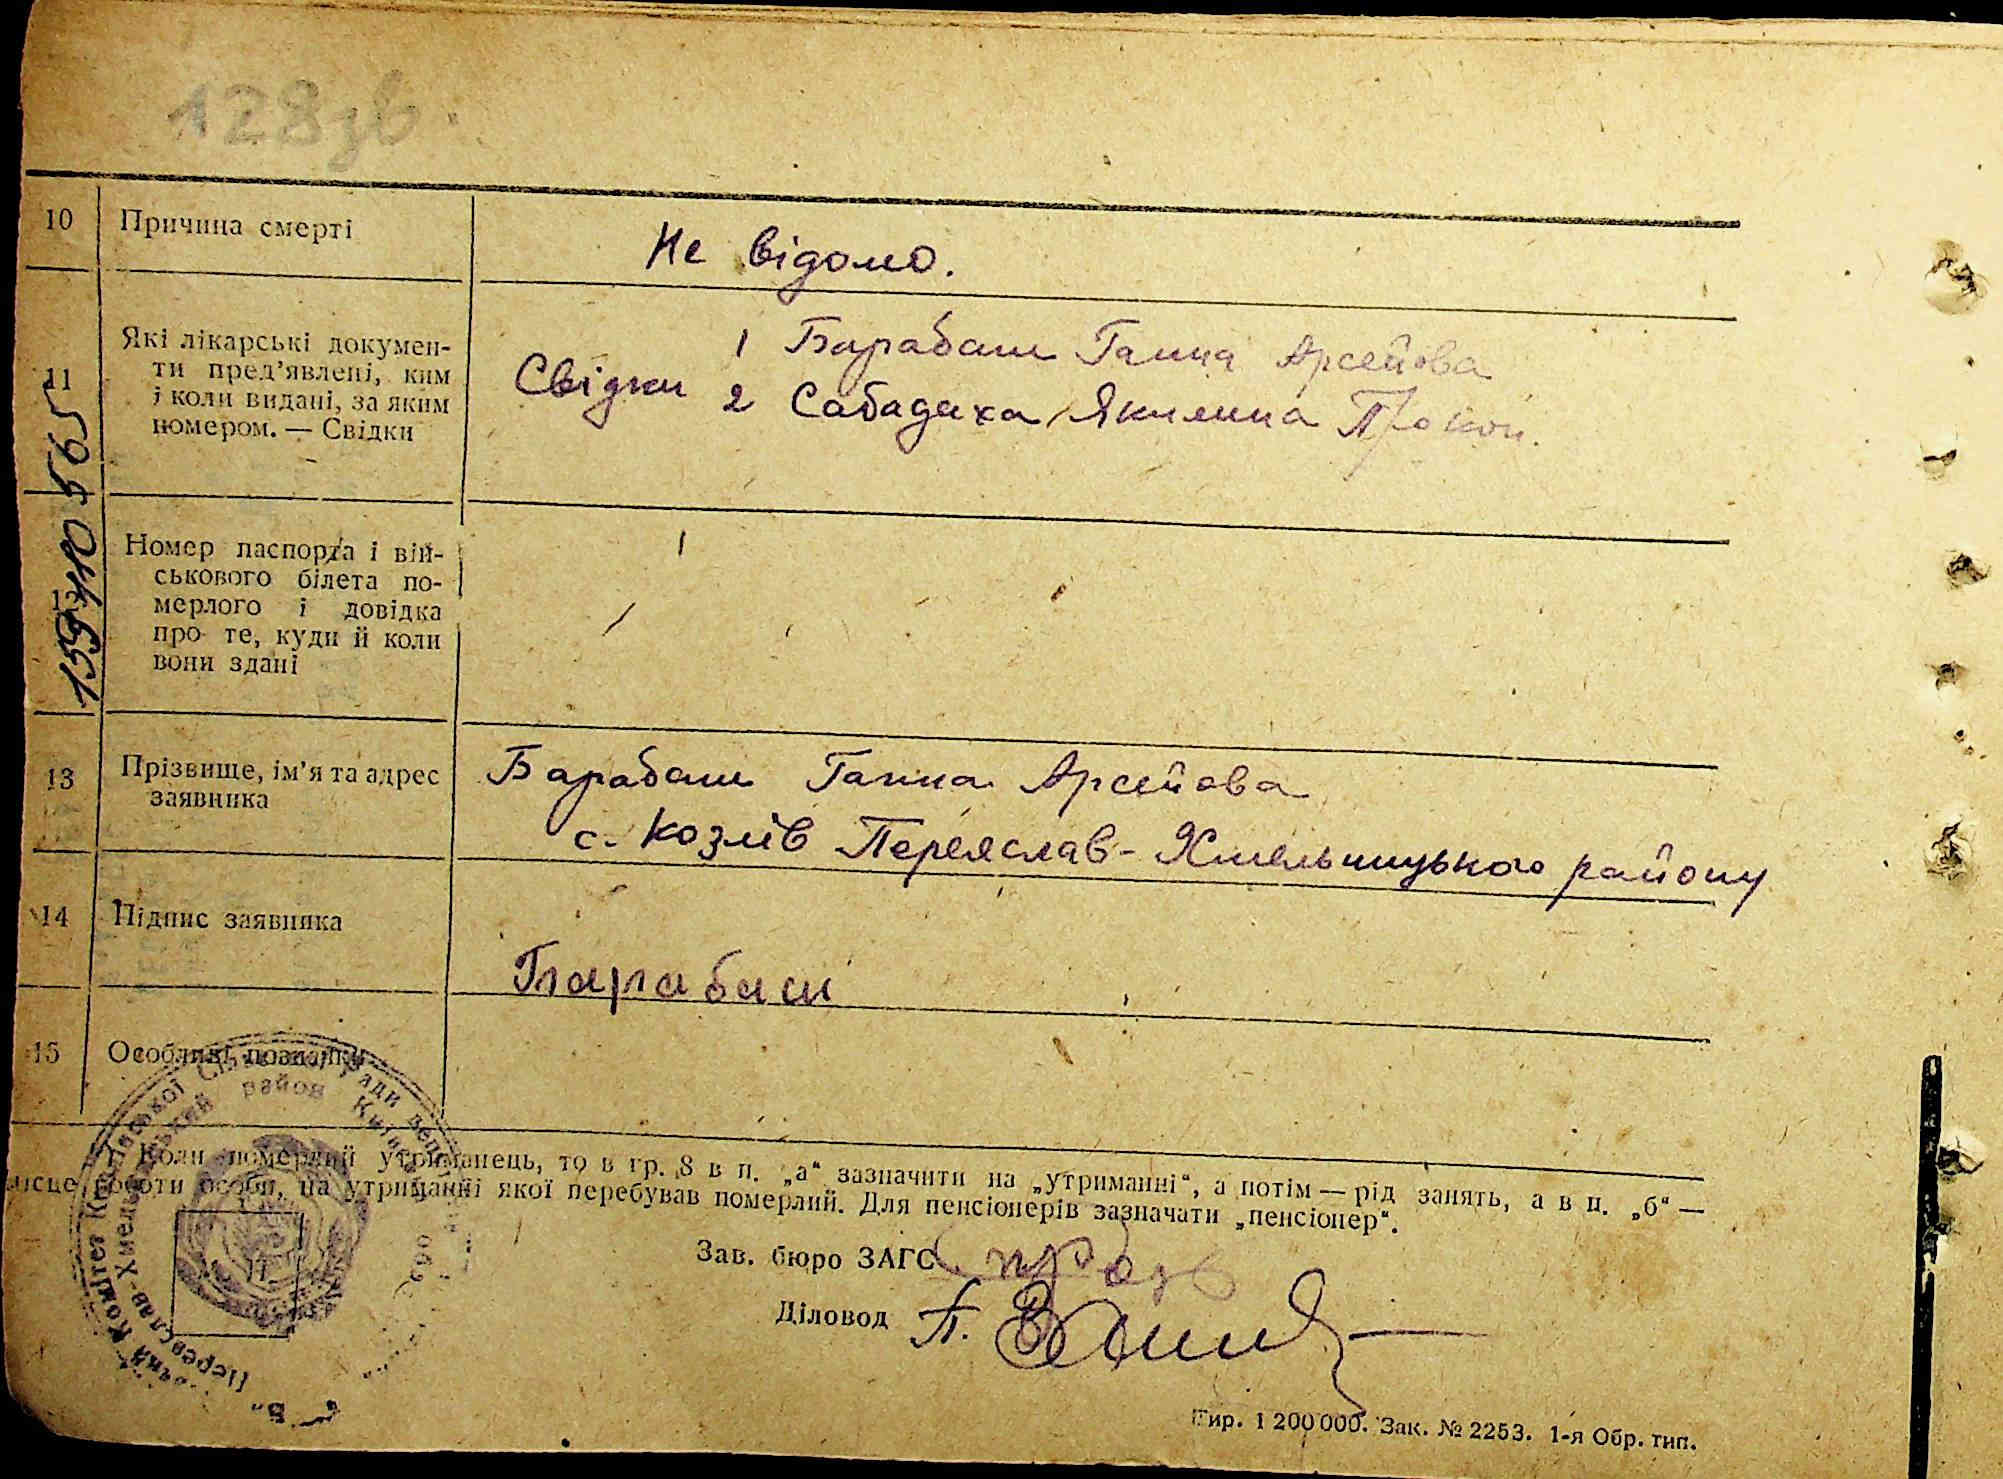 128зв.
10 Причина смерті
Не відомо.
11 Які лікарські докумен-
ти пред’явлені, ким
і коли видані, за яким
номером. — Свідки
1 Барабаш Ганна Арсейова
Свідки 2 Сабадаха Якилина Прокоп.
Номер паспорта і вій-
ськового білета по-
мерлого і довідка
про те, куди й коли
вони здані
13 Прізвище, ім’я та адрес
заявника
Барабаш Ганна Арсейова
с. Козлів Переяслав-Хмельницького району
14 Підпис заявника
Барабаш
15 Особливі познання
Коли померлий утриманець, то в гр. 8 в п. „а“ зазначити на „утриманні“, а потім — рід занять, а в п. „б“ —
місце роботи особи, на утриманні якої перебував померлий. Для пенсіонерів зазначати „пенсіонер“.
Зав. бюро ЗАГС
Діловод П.
Тир. 1 200 000. Зак. № 2253. 1-я Обр. тип.
Переяслав-Хмельницький район